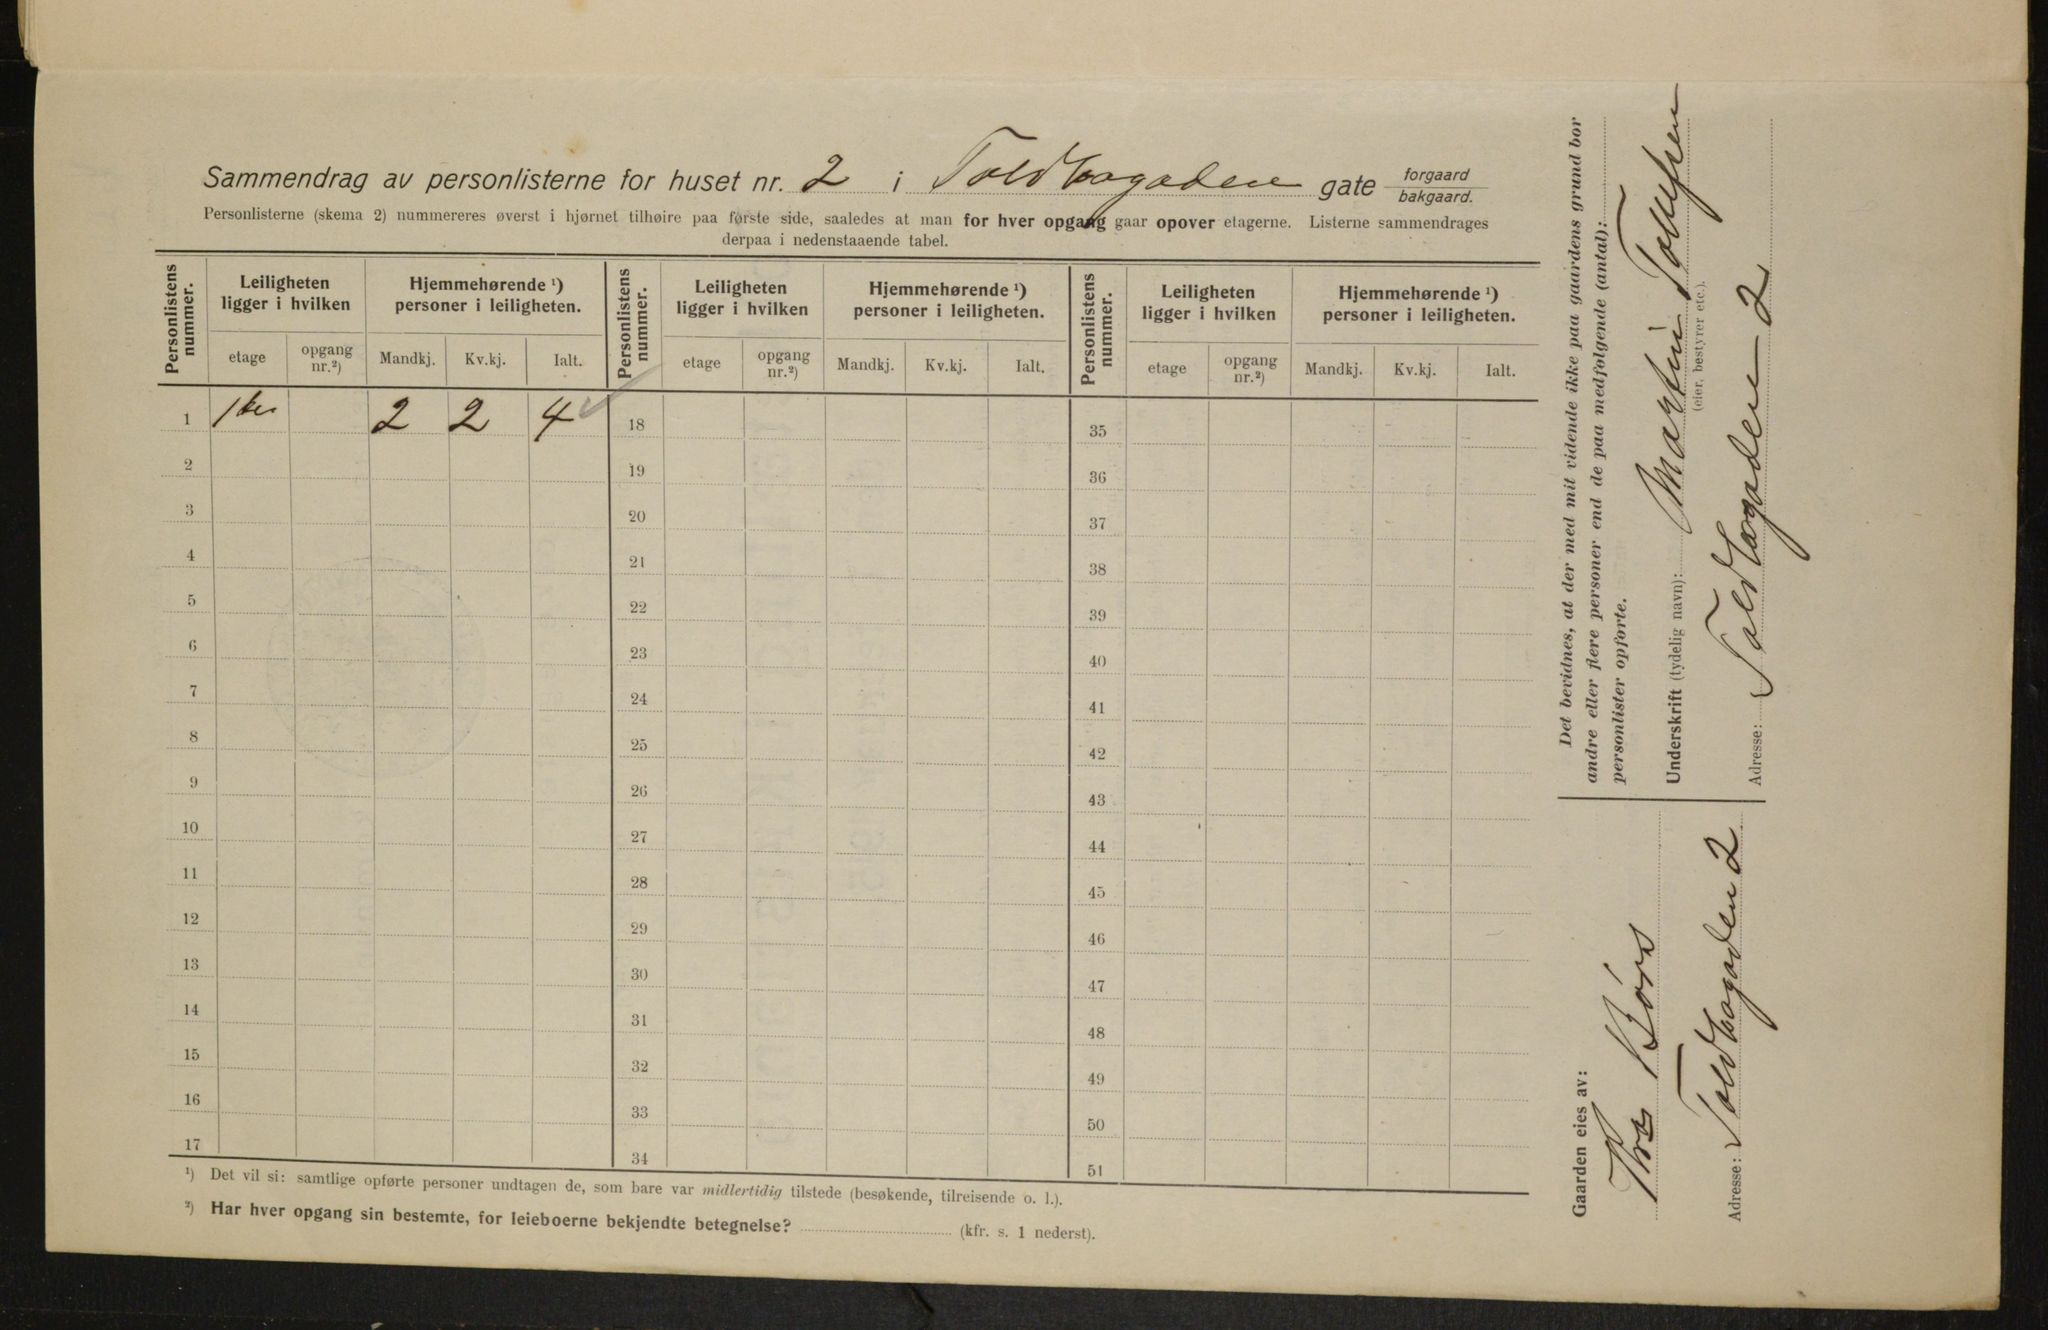 Sammendrag av personlisterne for huset nr. 2 i Toldbogaden gate forgaard bakgaard.
Personlisterne (skema 2) nummereres øverst i hjørnet tilhøire paa første side, saaledes at man for hver opgang gaar opover etagerne. Listerne sammendrages
derpaa i nedenstaaende tabel.
Personlistens nummer. Leiligheten ligger i hvilken Hjemmehørende ¹) personer i leiligheten. Personlistens nummer. Leiligheten ligger i hvilken Hjemmehørende ¹) personer i leiligheten. Personlistens nummer. Leiligheten ligger i hvilken Hjemmehørende ¹) personer i leiligheten.
etage opgang nr.²) Mandkj. Kv.kj. Ialt. etage opgang nr.²) Mandkj. Kv.kj. Ialt. etage opgang nr.²) Mandkj. Kv.kj. Ialt.
1 1ste 2 2 4 18 35
2 19 36
3 20 37
4 21 38
5 22 39
6 23 40
7 24 41
8 25 42
9 26 43
10 27 44
11 28 45
12 29 46
13 30 47
14 31 48
15 32 49
16 33 50
17 34 51
¹) Det vil si: samtlige opførte personer undtagen de, som bare var midlertidig tilstede (besøkende, tilreisende o. l.).
²) Har hver opgang sin bestemte, for leieboerne bekjendte betegnelse? (kfr. s. 1 nederst).
Det bevidnes, at der med mit vidende ikke paa gaardens grund bor
andre eller flere personer end de paa medfølgende (antal):
personlister opførte.
Underskrift (tydelig navn): Martin Tollefsen
(eier, bestyrer etc.).
Adresse: Toldbogaden 2
Gaarden eies av:
Børs
Adresse: Toldbogaden 2